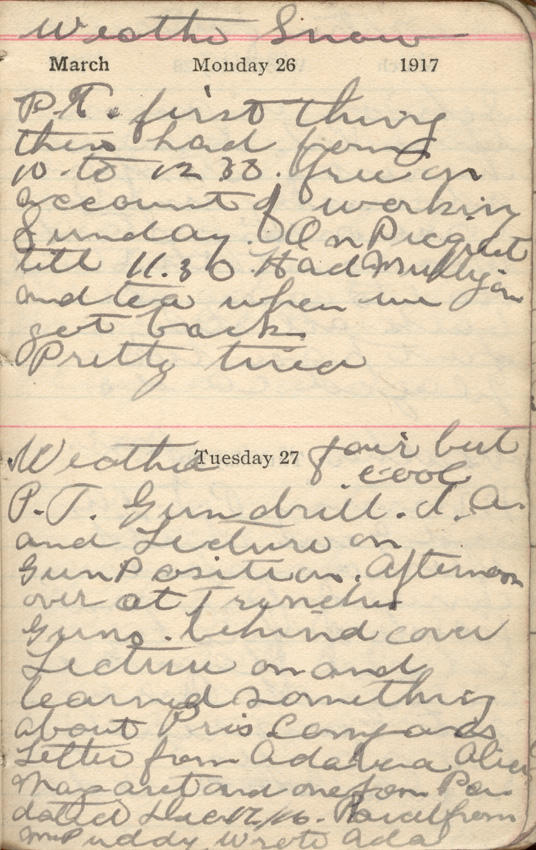 Weather Snow
March Monday 26 1917
P.T. first thing
then had from
10. to 12 30. free on
account of working
Sunday. On Picquet
till 11.30 Had Mulligan
and tea when we
got back
Pretty tired
Weather Tuesday 27 fair but
cool
P.T. Gun drill. I.A.
and Lecture on
Gun Position. Afternoon
over at Trenches
Guns. behind cover
Lecture on and
learned something
about Pris Compass
Letter from Ada Alice
Margaret and one from
dated Dec 17/16. Parcel from
Mr Puddy Wrote Ada